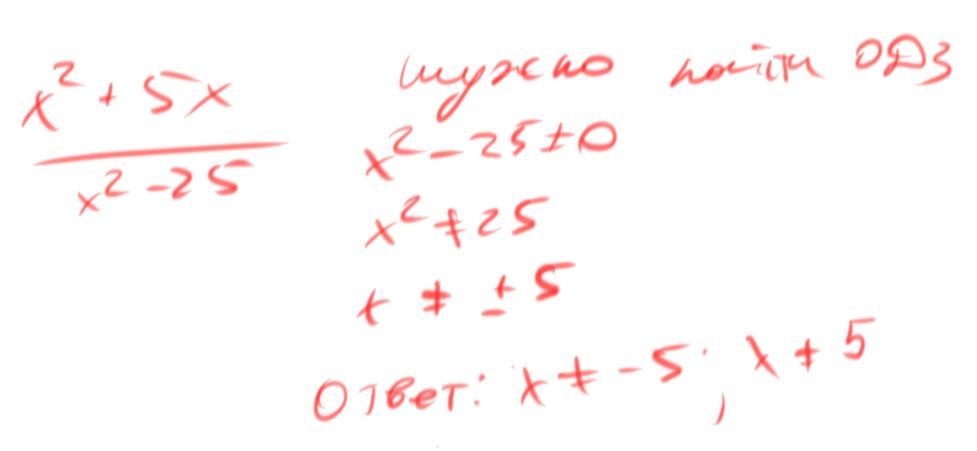 x² + 5x
x² - 25
нужно найти ОДЗ
x² - 25 ≠ 0
x² ≠ 25
x ≠ ± 5
Ответ: x ≠ -5; x ≠ 5